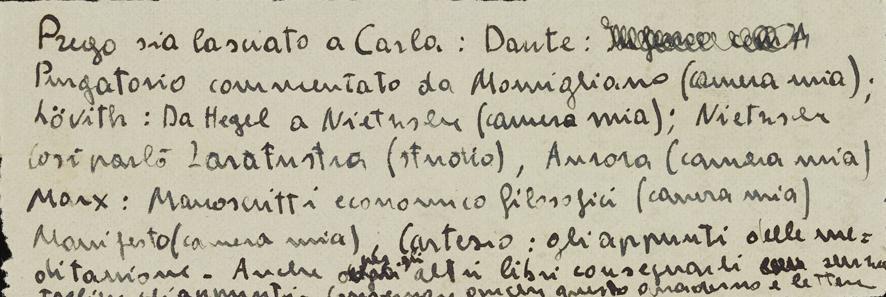 Prego sia lasciato a Carla : Dante :
Purgatorio commentato da Momigliano (camera mia) ;
Lövith : Da Hegel a Nietzsche (camera mia) ; Nietzsche
Così parlò Zaratustra (studio) , Aurora (camera mia)
Marx : Manoscritti economico filosofici (camera mia)
Manifesto (camera mia) , Cartesio : gli appunti delle me=
ditazioni - Anche altri libri consegnarli senza
gli appunti. questo quaderno e lettere